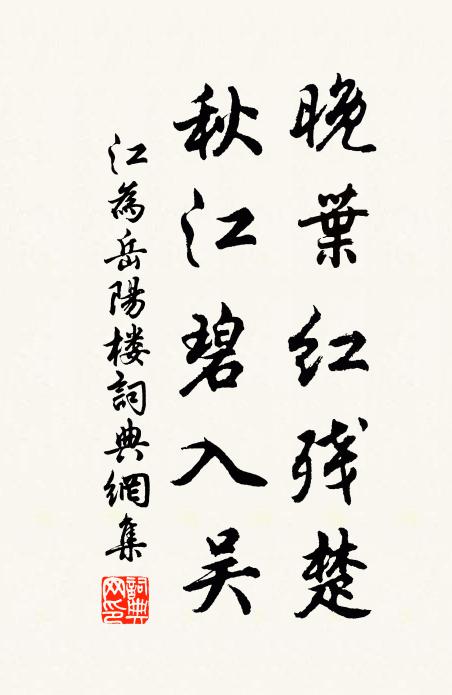 晚葉红残楚
秋江碧入吴
江為岳陽楼詞典網集
詞典
网印